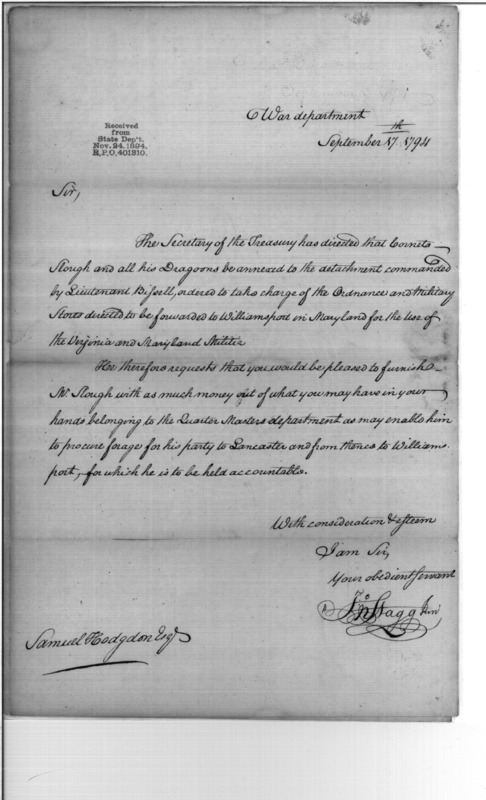 War department
September 17th 1794
Received
from
State Dep't.
Nov. 24. 1894.
R.P.O. 401310.
Sir,
The Secretary of the Treasury has directed that Cornet
Slough and all his Dragoons be annexed to the detachment commanded
by Lieutenant Bissell, ordered to take charge of the Ordnance and Military
Stores directed to be forwarded to Williamsport in Maryland for the Use of
the Virginia and Maryland Militia
He therefore requests that you would be pleased to furnish
Mr. Slough with as much money out of what you may have in your
hands belonging to the Quarter Masters department as may enable him
to procure forage for his party to Lancaster and from thence to Williams
port, for which he is to be held accountable.
With consideration & esteem
I am Sir,
Your obedient servant
Jno Stagg Junr
Samuel Hodgdon Esqr